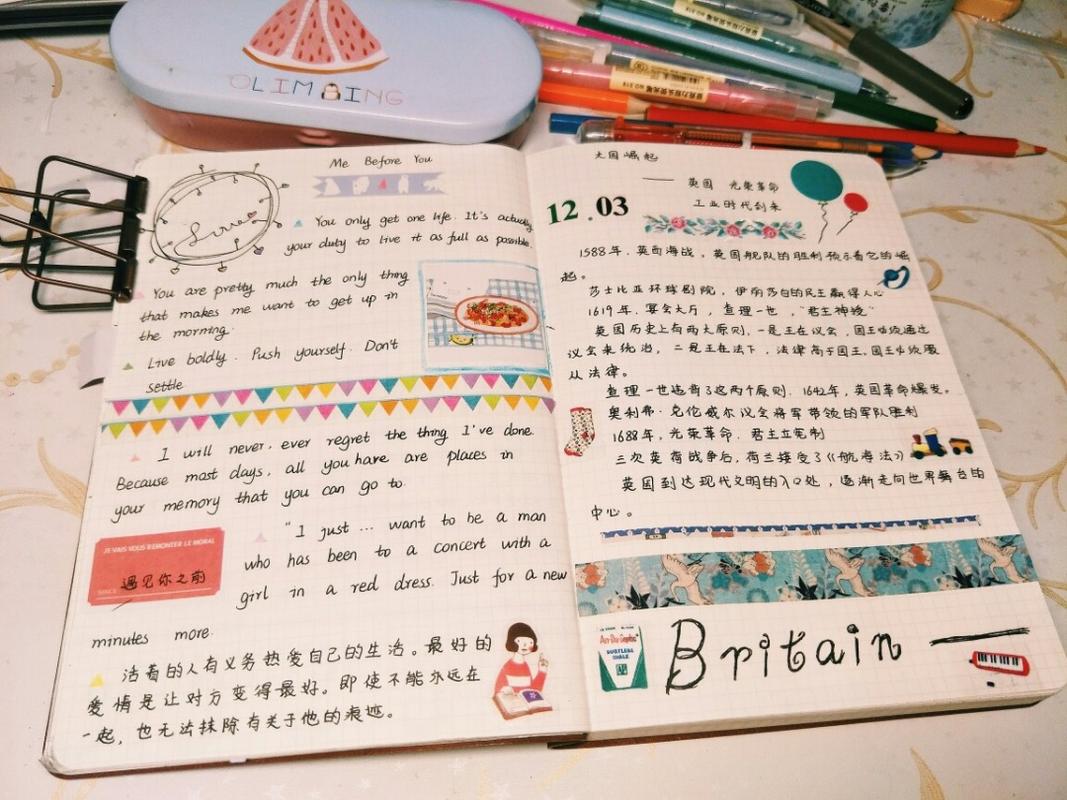 OLIMBING
Me Before You
Love
You only get one life. It's actually
your duty to live it as full as possible.
You are pretty much the only thing
that makes me want to get up in
the morning.
Live boldly. Push yourself. Don't
settle
I will never, ever regret the thing I've done.
Because most days, all you have are places in
your memory that you can go to.
"I just ... want to be a man
who has been to a concert with a
girl in a red dress. Just for a new
minutes more.
JE VAIS VOUS REMONTER LE MORAL
遇见你之前
SINCE
活着的人有义务热爱自己的生活。最好的
爱情是让对方变得最好。即使不能永远在
一起,也无法抹除有关于他的痕迹。
大国崛起
—— 英国 光荣革命
工业时代到来
12.03
1588年,英西海战,英国舰队的胜利预示着它的崛
起。
莎士比亚环球剧院,伊丽莎白的民主赢得人心
1619年,宴会大厅,查理一世,"君主神授"
英国历史上有两大原则,一是王在议会,国王必须通过
议会来统治,二是王在法下,法律高于国王,国王必须服
从法律。
查理一世违背了这两个原则.1642年,英国革命爆发。
奥利弗·克伦威尔议会将军带领的军队胜利
1688年,光荣革命.君主立宪制
三次英荷战争后,荷兰接受了《航海法》
英国到达现代文明的入口处,逐渐走向世界舞台的
中心。
Britain